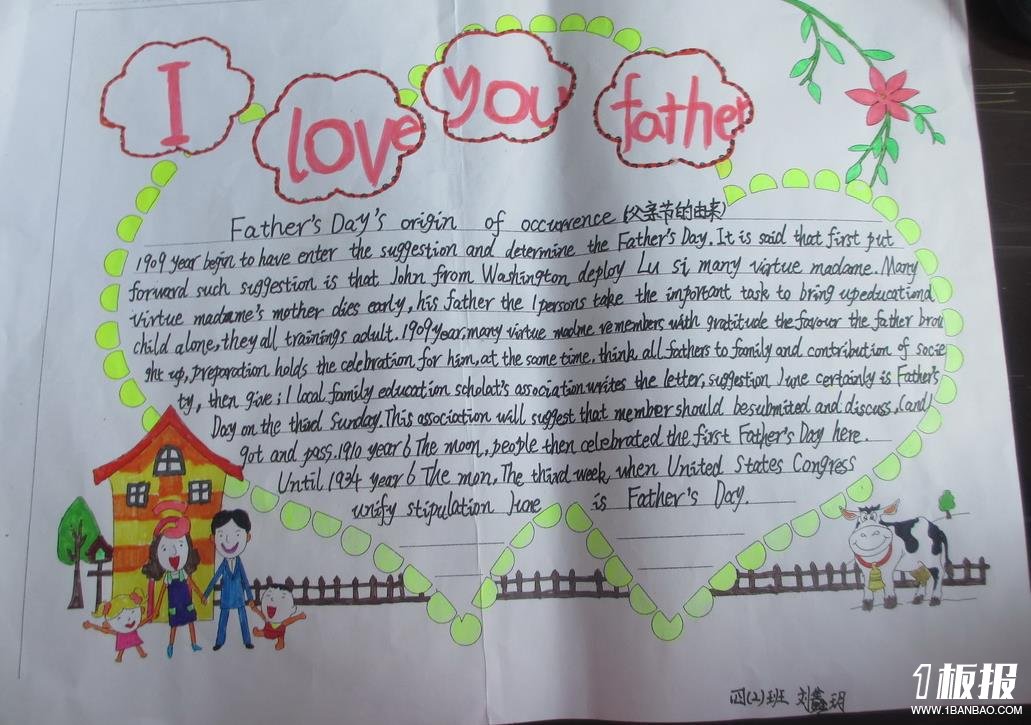 I love you father
Father's Day's origin of occurrence (父亲节的由来)
1909 year begin to have enter the suggestion and determine the Father's Day. It is said that first put
forward such suggestion is that John from Washington deploy Lu si, many virtue madame. Many
virtue madame's mother dies early, his father the 1 persons take the important task to bring up educationa
child alone, they all trainings adult. 1909 year, many virtue madme remembers with gratitude the favour the father brou
ght up, preparation holds the celebration for him, at the same time, think all fathers to family and contribution of socie
ty, then give; 1 local family education scholat's association writes the letter, suggestion June certainly is Father's
Day on the third Sunday. This association will suggest that member should be submited and discuss, (and)
got and pass. 1910 year 6 The moon, people then celebrated the first Father's Day here.
Until 1934 year 6 The mon, The third week, when United States Congress
unify stipulation June is Father's Day.
四(2)班 刘鑫玥
1板报
WWW.1BANBAO.COM